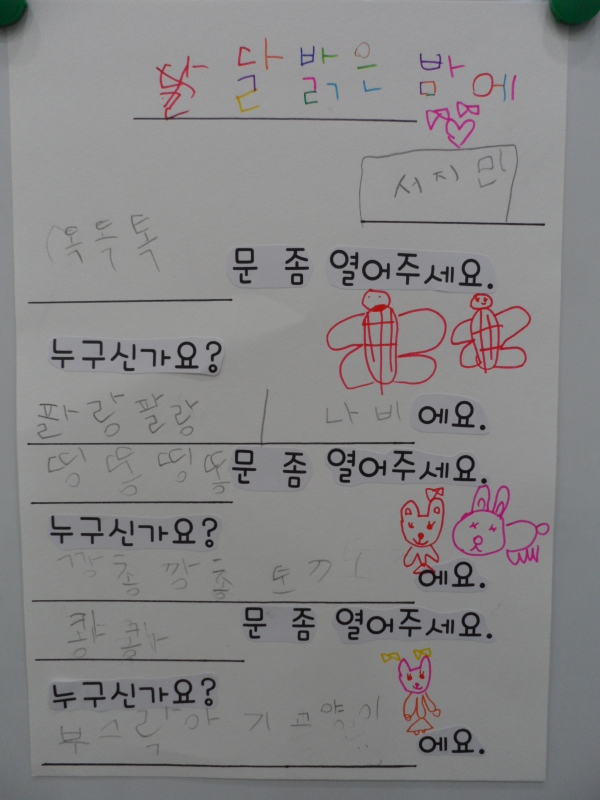 달 달 밝은 밤에
서지민
똑똑똑 문 좀 열어주세요.
누구신가요?
파랑팔랑 나비 에요.
띵동띵동 문 좀 열어주세요.
누구신가요?
깡총깡총 토끼 에요.
쾅쾅 문 좀 열어주세요.
누구신가요?
부스럭 아기고양이 에요.